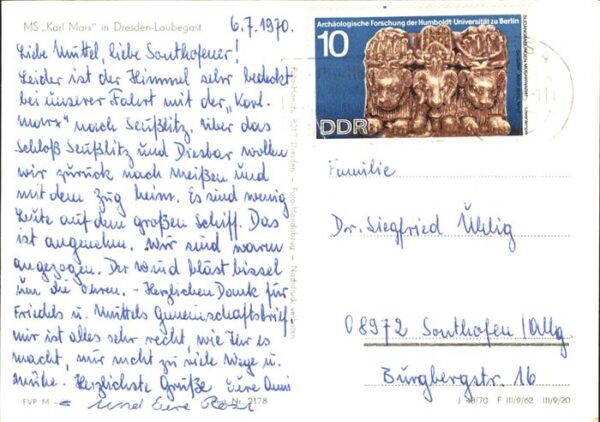 MS „Karl Marx" in Dresden-Laubegast
6.7.1970.
Liebe Muttel, liebe Sonthofener!
Leider ist der Himmel sehr bedeckt
bei unserer Fahrt mit der „Karl-
marx" nach Seußlitz. über das
Schloß Seußlitz und Diesbar wollen
wir zurück nach Meißen und
mit dem Zug heim. Es sind wenig
Leute auf dem großen Schiff. Das
ist angenehm. Wir sind warm
angezogen. Der Wind bläst bissel
um die Ohren. - Herzlichen Dank für
Friedels u. Muttels Gemeinschaftsbrief.
mir ist alles sehr recht, wie Ihr es
macht, nur nicht zu viele Wege u.
Mühe. Herzlichste Grüße Eure Omi
und Eure Rosi
EVP M
Nr. 2178
Archäologische Forschung der Humboldt-Universität zu Berlin
10
DDR
Familie
Dr. Siegfried Ühlig
08972 Sonthofen/Allg
Burgbergstr. 16
J 48/70 F III/9/62 III/9/20